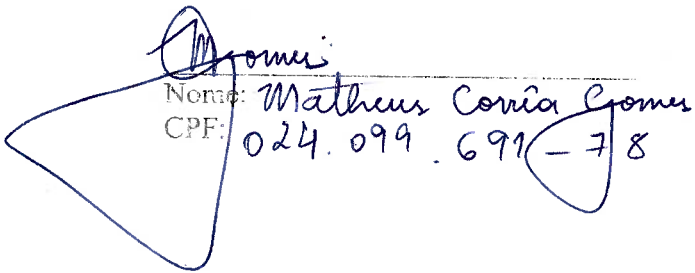 Nome: Matheus Corrêa Gomes
CPF: 024.099.691-78